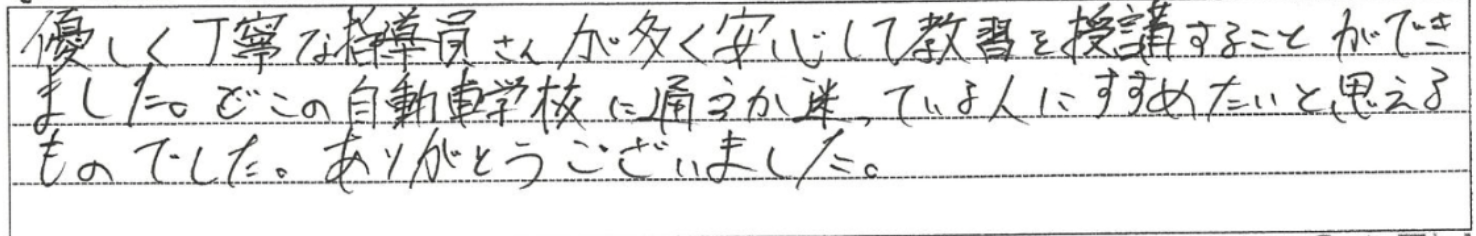 優しく丁寧な指導員さんが多く安心して教習を授講することができ
ました。どこの自動車学校に通うか迷っている人にすすめたいと思える
ものでした。ありがとうございました。